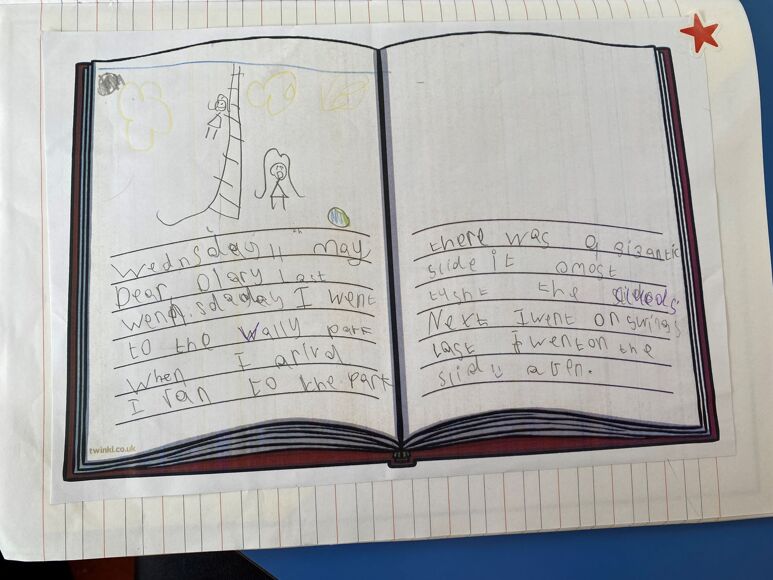 Wednsday 11th may
Dear Diary Last
wensdaday I went
to the Wally park
When I arivd
I ran to the park
there was a gizantic
slide it omost
tusht the clouds
Next I went on swings
Last I went on the
slid a gen.
twinkl.co.uk